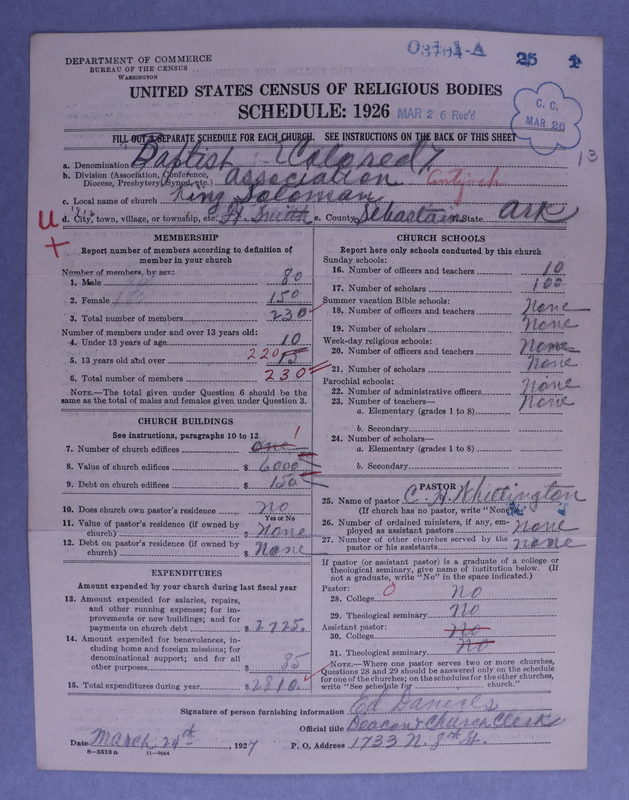 DEPARTMENT OF COMMERCE
BUREAU OF THE CENSUS
WASHINGTON
25 1
UNITED STATES CENSUS OF RELIGIOUS BODIES
SCHEDULE: 1926
MAR 26 Rec'd
C. C.
MAR 26
13
FILL OUT A SEPARATE SCHEDULE FOR EACH CHURCH. SEE INSTRUCTIONS ON THE BACK OF THIS SHEET
a. Denomination Baptist (Colored)
b. Division (Association, Conference, Diocese, Presbytery, Synod, etc.) Association
c. Local name of church King Solomon
d. City, town, village, or township, etc. Ft Smith e. County Sebastain f. State Ark
U
+
MEMBERSHIP
Report number of members according to definition of
member in your church
Number of members, by sex:
1. Male 80
2. Female 150
3. Total number of members 230
Number of members under and over 13 years old:
4. Under 13 years of age 10
5. 13 years old and over 220 15
6. Total number of members 230
NOTE.—The total given under Question 6 should be the
same as the total of males and females given under Question 3.
CHURCH BUILDINGS
See instructions, paragraphs 10 to 12
7. Number of church edifices one 1
8. Value of church edifices $ 6000
9. Debt on church edifices $ 150
10. Does church own pastor's residence No
Yes or No
11. Value of pastor's residence (if owned by
church) $ None
12. Debt on pastor's residence (if owned by
church) $ None
EXPENDITURES
Amount expended by your church during last fiscal year
13. Amount expended for salaries, repairs,
and other running expenses; for im-
provements or new buildings; and for
payments on church debt $ 2725.
14. Amount expended for benevolences, in-
cluding home and foreign missions; for
denominational support; and for all
other purposes $ 85
15. Total expenditures during year $ 2810.
CHURCH SCHOOLS
Report here only schools conducted by this church
Sunday schools:
16. Number of officers and teachers 10
17. Number of scholars 100
Summer vacation Bible schools:
18. Number of officers and teachers None
19. Number of scholars None
Week-day religious schools:
20. Number of officers and teachers None
21. Number of scholars None
Parochial schools:
22. Number of administrative officers None
23. Number of teachers— None
a. Elementary (grades 1 to 8)
b. Secondary
24. Number of scholars—
a. Elementary (grades 1 to 8)
b. Secondary
PASTOR
25. Name of pastor C H Whittington
(If church has no pastor, write "None")
26. Number of ordained ministers, if any, em-
ployed as assistant pastors None
27. Number of other churches served by the
pastor or his assistants none
If pastor (or assistant pastor) is a graduate of a college or
theological seminary, give name of institution below. (If
not a graduate, write "No" in the space indicated.)
Pastor:
28. College O No
29. Theological seminary No
Assistant pastor:
30. College No
31. Theological seminary No
NOTE.—Where one pastor serves two or more churches,
Questions 28 and 29 should be answered only on the schedule
for one of the churches; on the schedules for the other churches,
write "See schedule for church."
Signature of person furnishing information Ed Daniels
Official title Deacon & Church Clerk
Date March 24th, 1927 P. O. Address 1733 N. 8th St.
8—5518a 11—9054